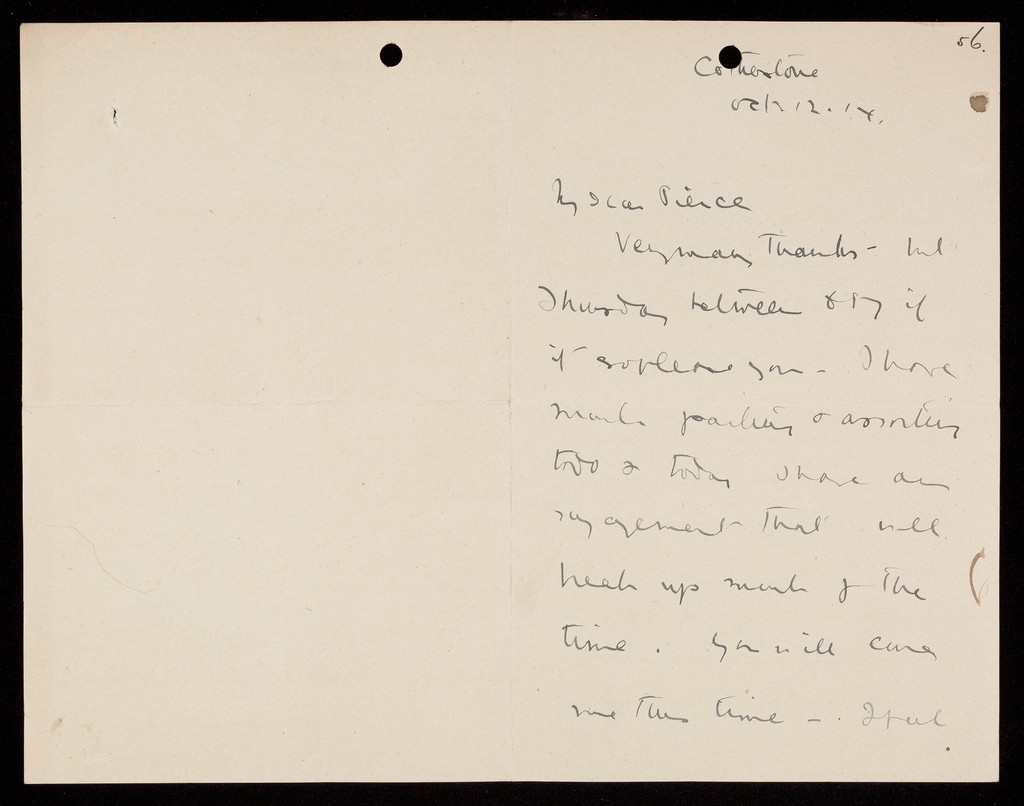 56.
Cotherstone
Oct 12. 14.
My dear Pierce
Very many Thanks - but
Thursday between & 7 if
it so please you - I have
much packing & assorting
to do & today I have an
engagement that will
break up much of the
time. You will
me this time - I feel